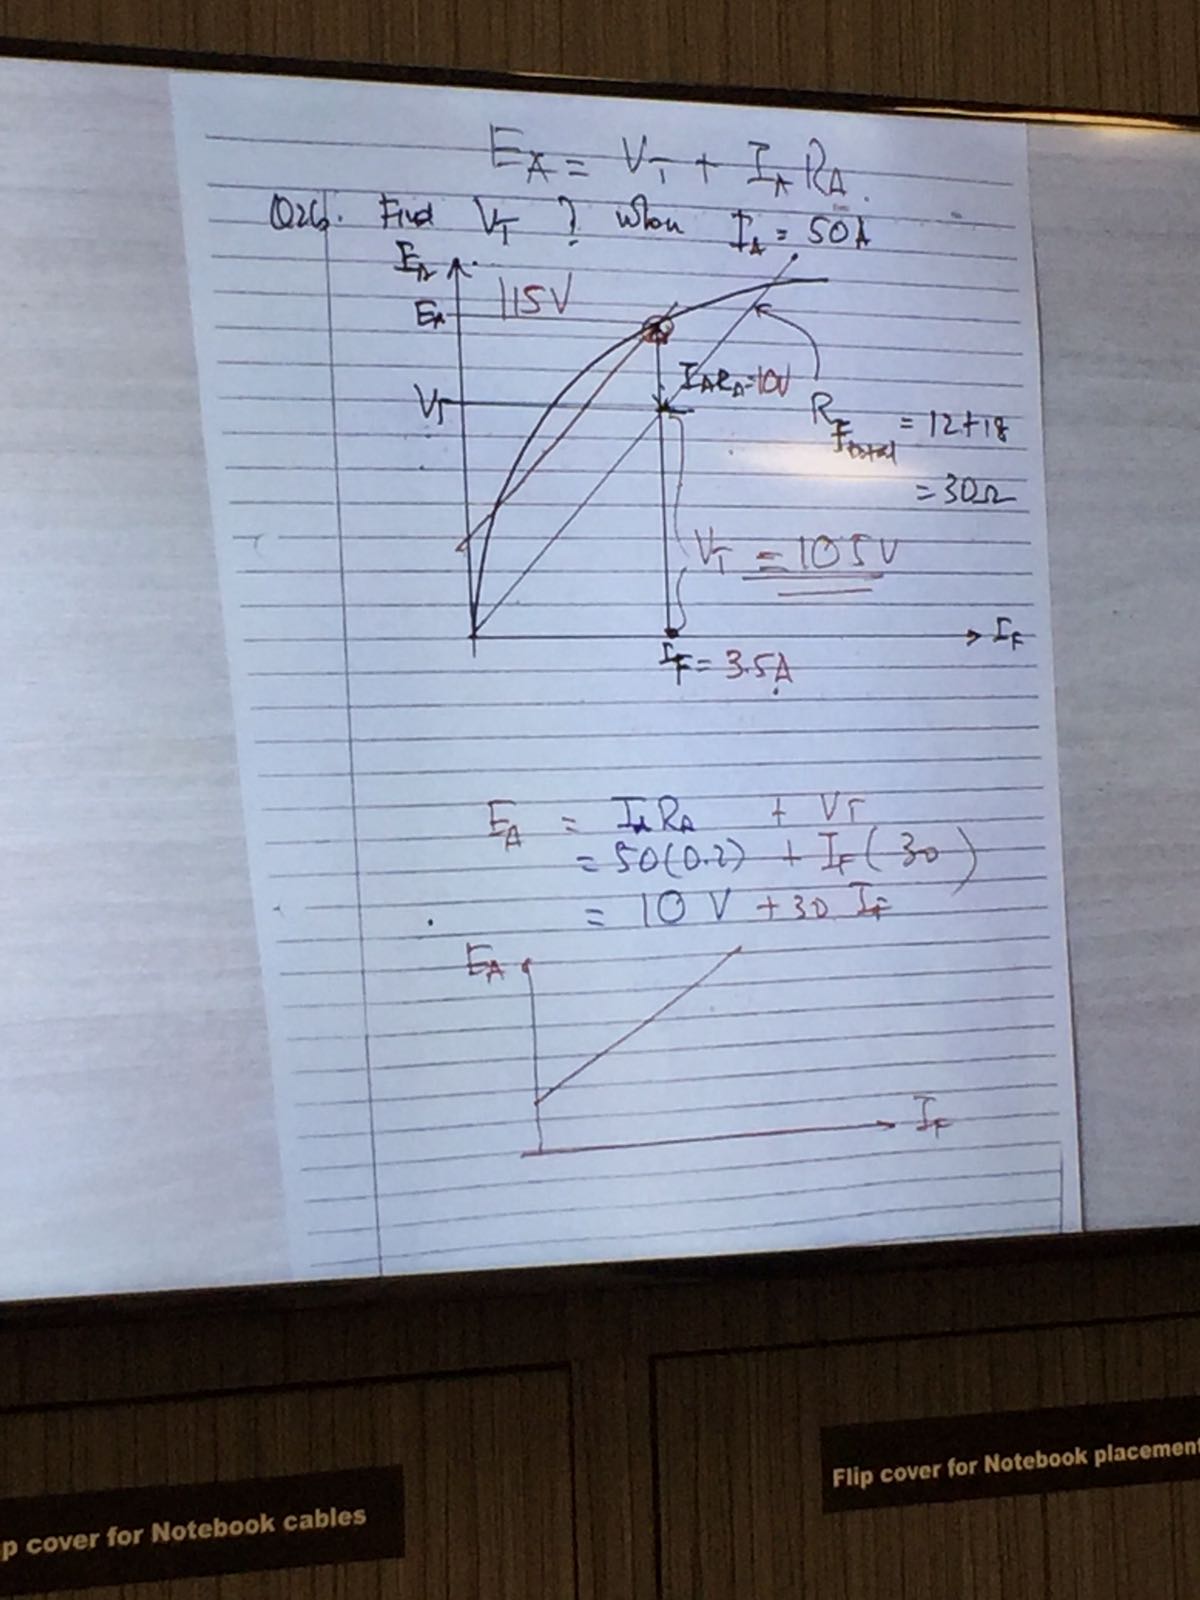 E_A = V_T + I_A R_A.
Q2b. Find V_T ? when I_A = 50A
E_A
E_A 115V
I_A R_A = 10V
V_T
R_F total = 12+18
= 30Ω
V_T = 105V
I_F
I_F = 3.5A
E_A = I_A R_A + V_T
= 50(0.2) + I_F (30)
= 10 V + 30 I_F
E_A
I_F
Flip cover for Notebook placement
p cover for Notebook cables